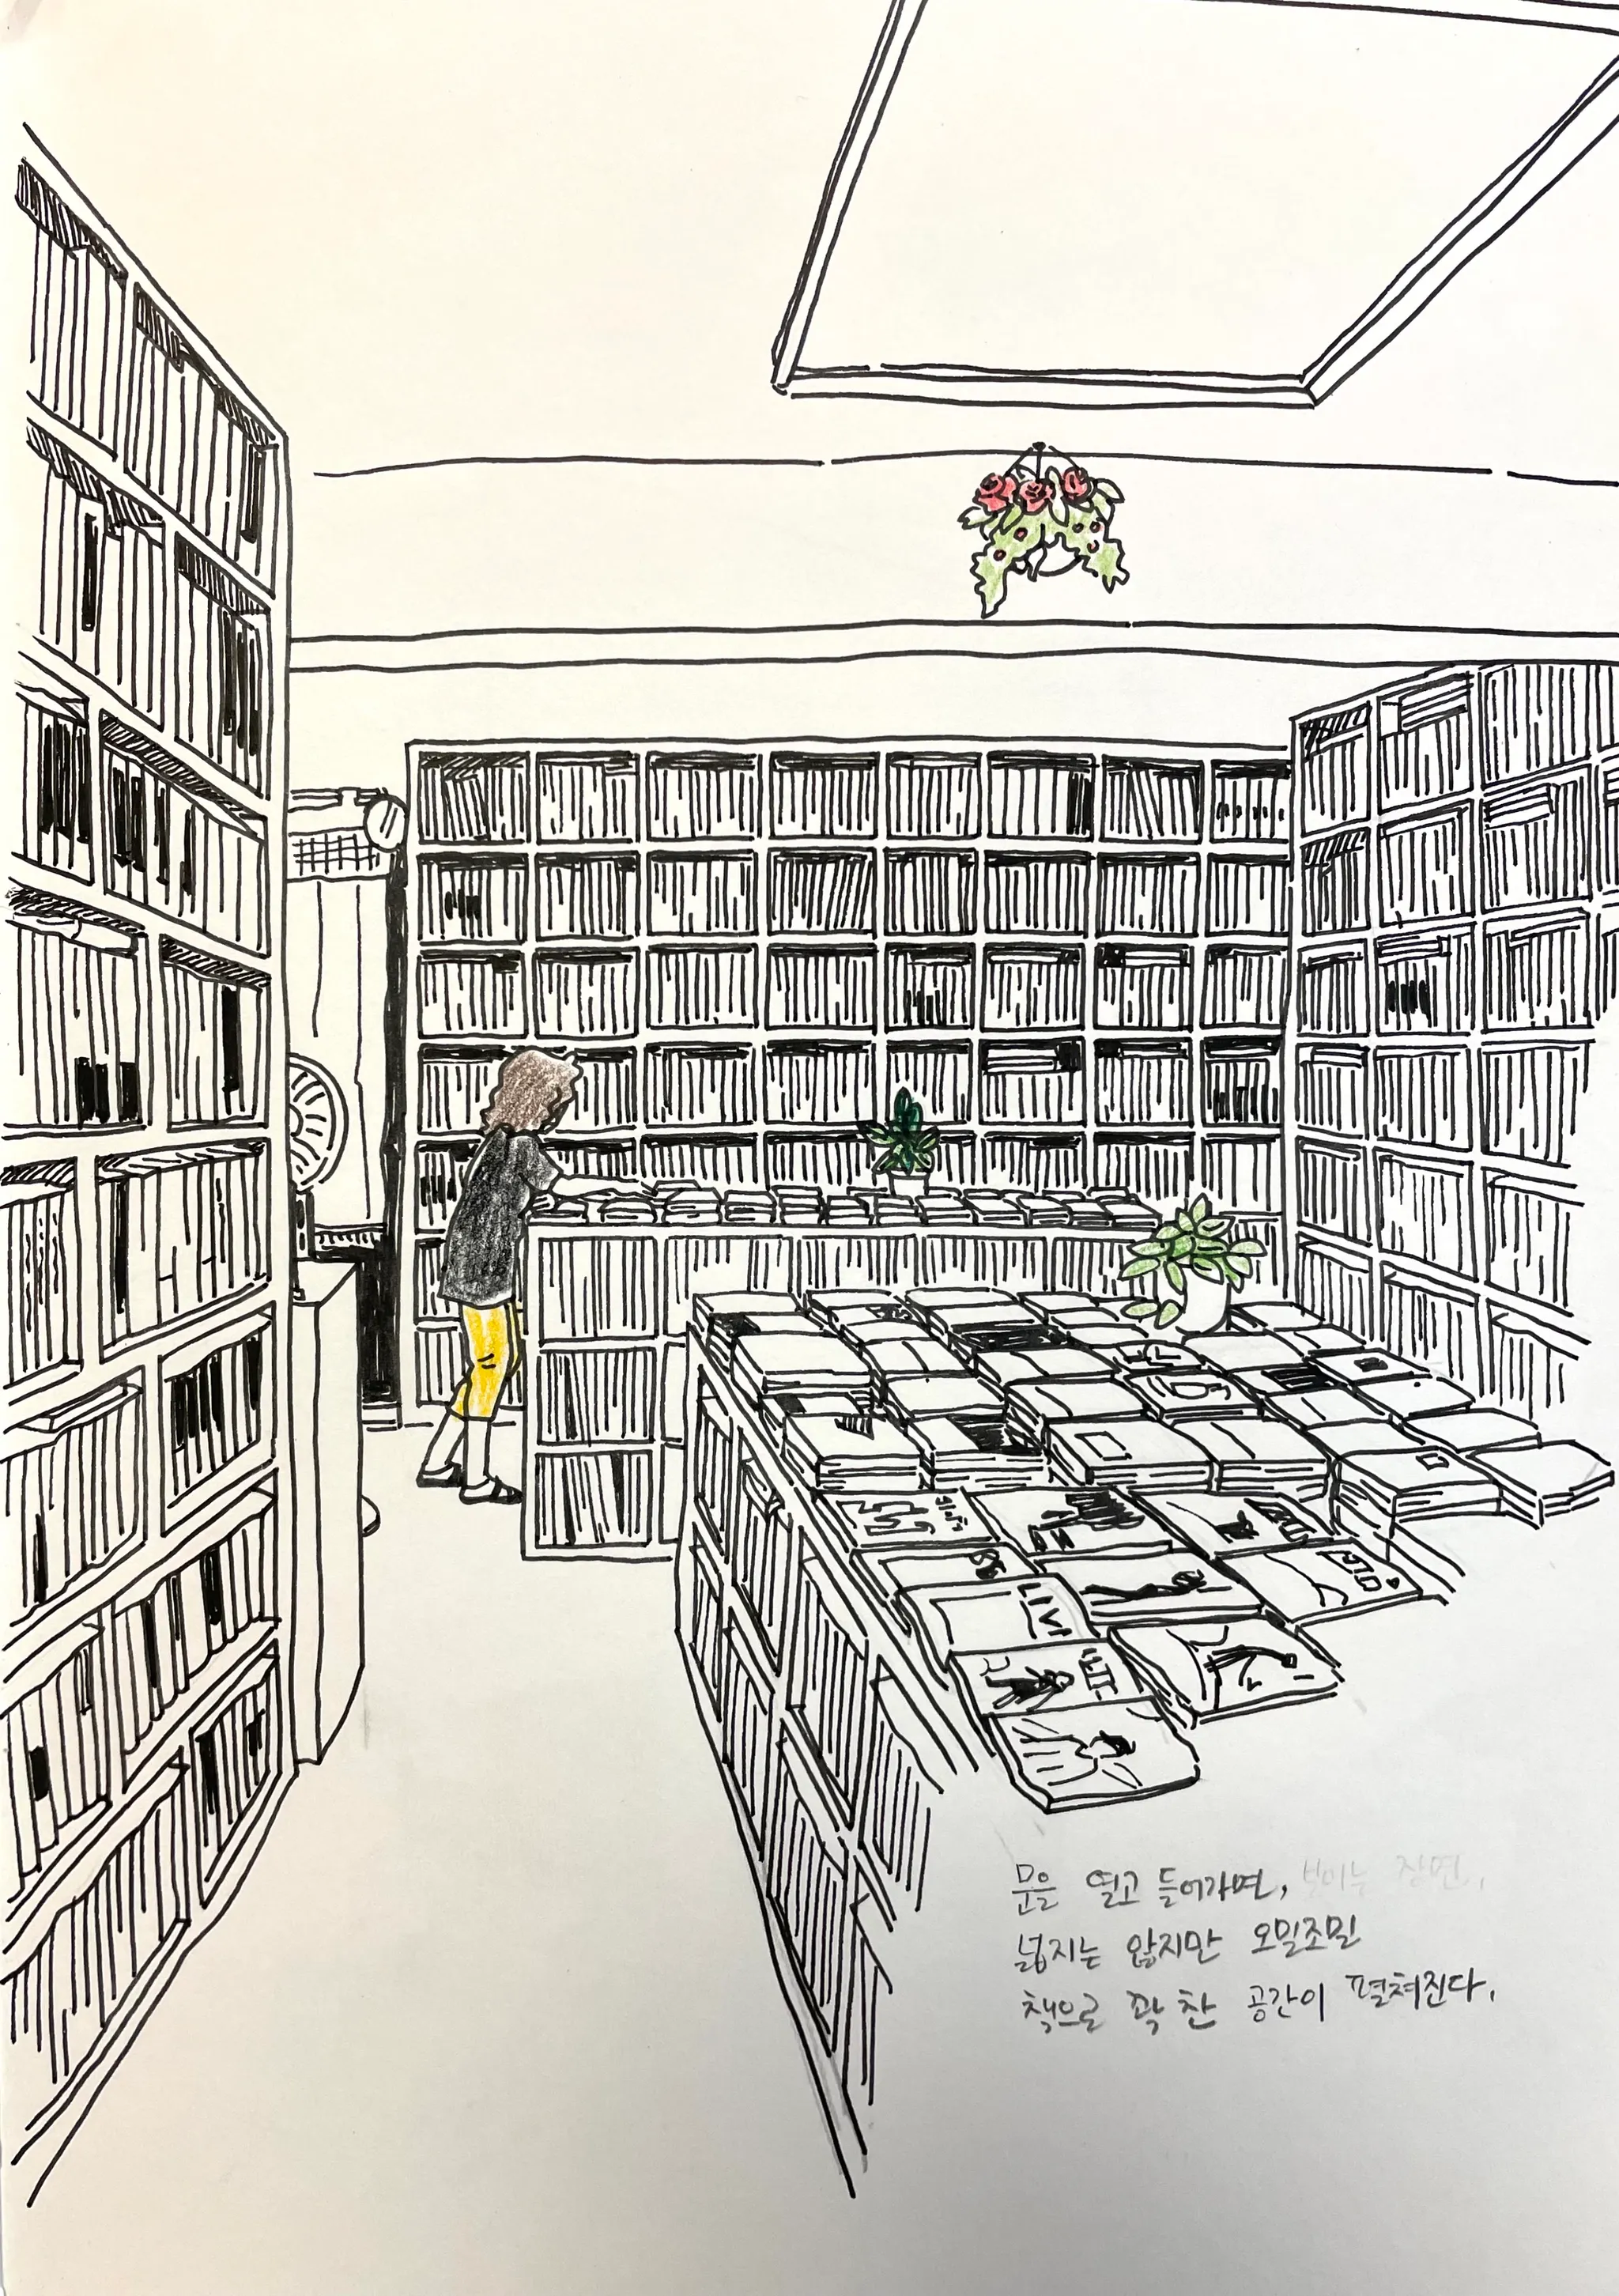 LIVI
문을 열고 들어가면, 보이는 장면,
넓지는 않지만 오밀조밀
책으로 꽉 찬 공간이 펼쳐진다.